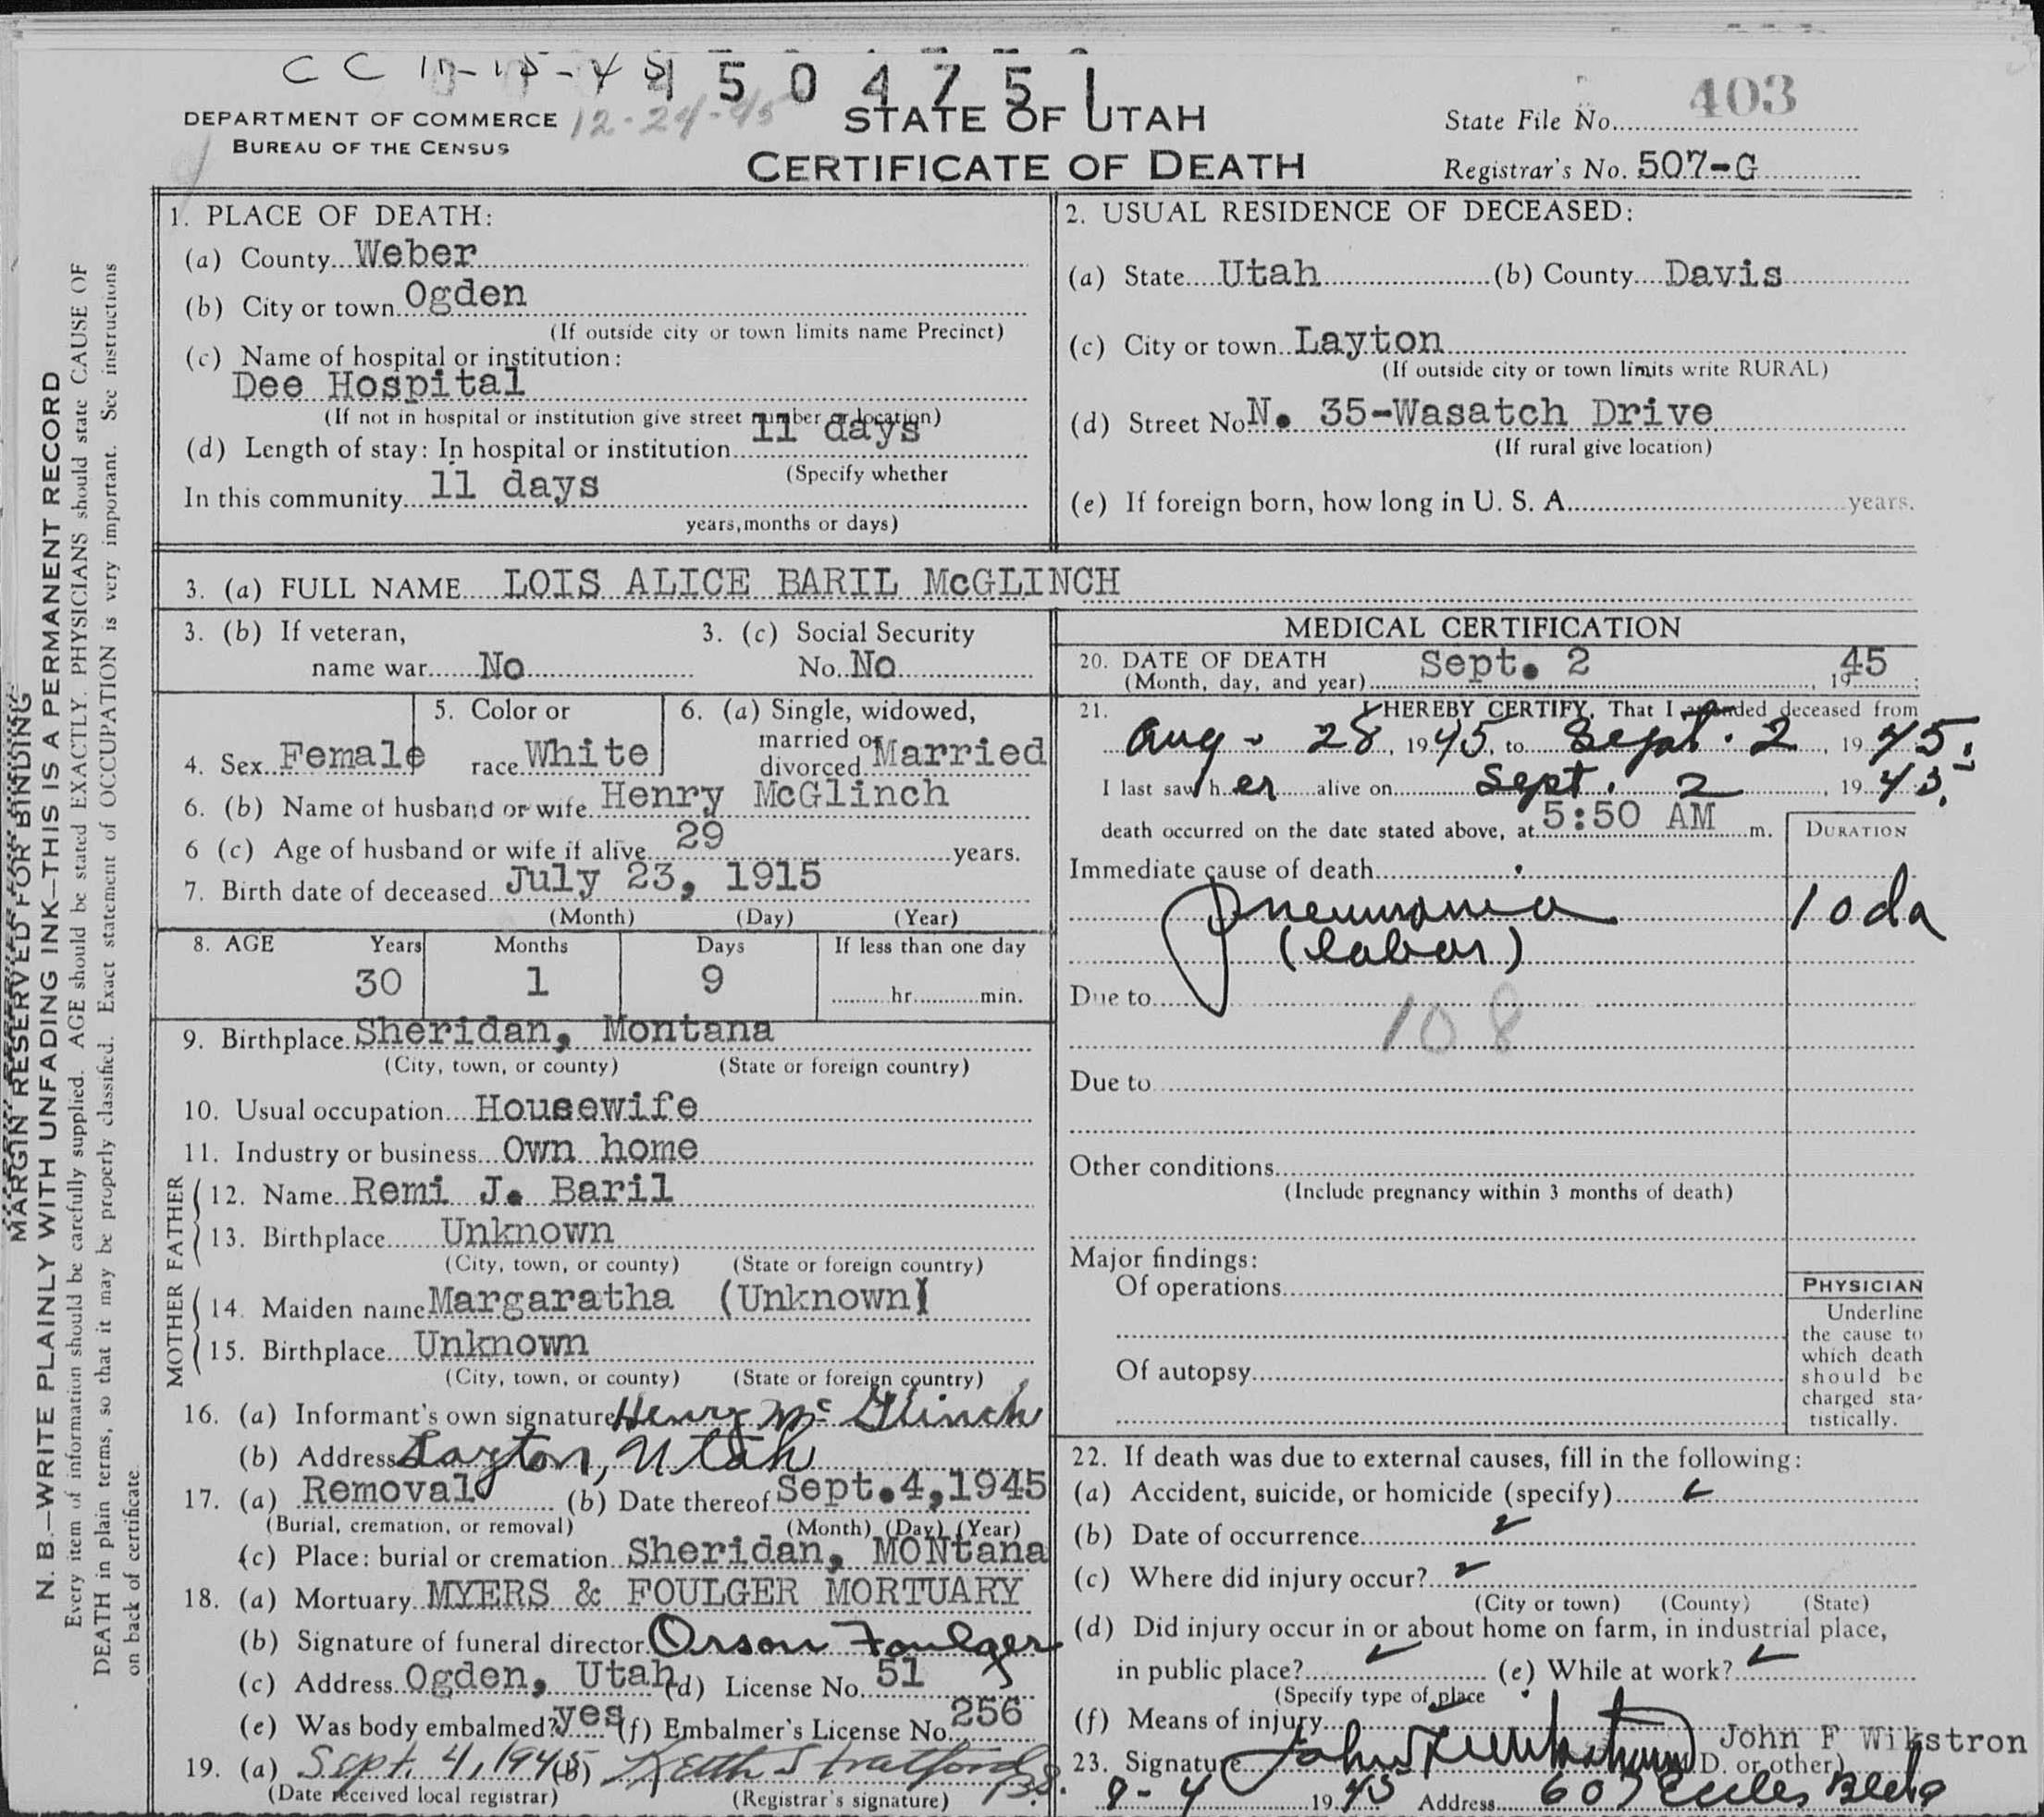 CC 11-15-45 4504751
12-24-45
403
DEPARTMENT OF COMMERCE
BUREAU OF THE CENSUS
STATE OF UTAH
CERTIFICATE OF DEATH
State File No.
Registrar's No. 507-G
MARGIN RESERVED FOR BINDING
N. B.—WRITE PLAINLY WITH UNFADING INK—THIS IS A PERMANENT RECORD
Every item of information should be carefully supplied. AGE should be stated EXACTLY. PHYSICIANS should state CAUSE OF
DEATH in plain terms, so that it may be properly classified. Exact statement of OCCUPATION is very important. See instructions
on back of certificate.
1. PLACE OF DEATH:
(a) County Weber
(b) City or town Ogden
(If outside city or town limits name Precinct)
(c) Name of hospital or institution:
Dee Hospital
(If not in hospital or institution give street number or location)
(d) Length of stay: In hospital or institution 11 days
(Specify whether
In this community 11 days
years, months or days)
2. USUAL RESIDENCE OF DECEASED:
(a) State Utah (b) County Davis
(c) City or town Layton
(If outside city or town limits write RURAL)
(d) Street No N. 35-Wasatch Drive
(If rural give location)
(e) If foreign born, how long in U. S. A. years.
3. (a) FULL NAME LOIS ALICE BARIL McGLINCH
3. (b) If veteran, 3. (c) Social Security
name war No No. No
4. Sex Female
5. Color or
race White
6. (a) Single, widowed,
married or
divorced Married
6. (b) Name of husband or wife Henry McGlinch
6 (c) Age of husband or wife if alive 29 years.
7. Birth date of deceased July 23, 1915
(Month) (Day) (Year)
8. AGE Years Months Days If less than one day
30 1 9 hr. min.
9. Birthplace Sheridan, Montana
(City, town, or county) (State or foreign country)
10. Usual occupation Housewife
11. Industry or business Own home
FATHER
12. Name Remi J. Baril
13. Birthplace Unknown
(City, town, or county) (State or foreign country)
MOTHER
14. Maiden name Margaratha (Unknown)
15. Birthplace Unknown
(City, town, or county) (State or foreign country)
16. (a) Informant's own signature Henry McGlinch
(b) Address Layton, Utah
17. (a) Removal (b) Date thereof Sept. 4, 1945
(Burial, cremation, or removal) (Month) (Day) (Year)
(c) Place: burial or cremation Sheridan, MONtana
18. (a) Mortuary MYERS & FOULGER MORTUARY
(b) Signature of funeral director Orson Foulger
(c) Address Ogden, Utah (d) License No. 51
(e) Was body embalmed? yes (f) Embalmer's License No. 256
19. (a) Sept. 4, 1945 (b) Keith Stratford
(Date received local registrar) (Registrar's signature)
MEDICAL CERTIFICATION
20. DATE OF DEATH Sept. 2 45
(Month, day, and year) , 19 ;
21. I HEREBY CERTIFY, That I attended deceased from
Aug. 28, 1945, to Sept. 2, 1945;
I last saw her alive on Sept. 2, 1945;
death occurred on the date stated above, at 5:50 AM m.
DURATION
Immediate cause of death
Pneumonia 10 da
(lobar)
Due to
108
Due to
Other conditions
(Include pregnancy within 3 months of death)
Major findings:
Of operations
Of autopsy
PHYSICIAN
Underline
the cause to
which death
should be
charged sta-
tistically.
22. If death was due to external causes, fill in the following:
(a) Accident, suicide, or homicide (specify)
(b) Date of occurrence
(c) Where did injury occur?
(City or town) (County) (State)
(d) Did injury occur in or about home on farm, in industrial place,
in public place? (e) While at work?
(Specify type of place
(f) Means of injury
John F Wikstron
23. Signature (M. D. or other)
9-4 1945 Address 607 Eccles Bldg